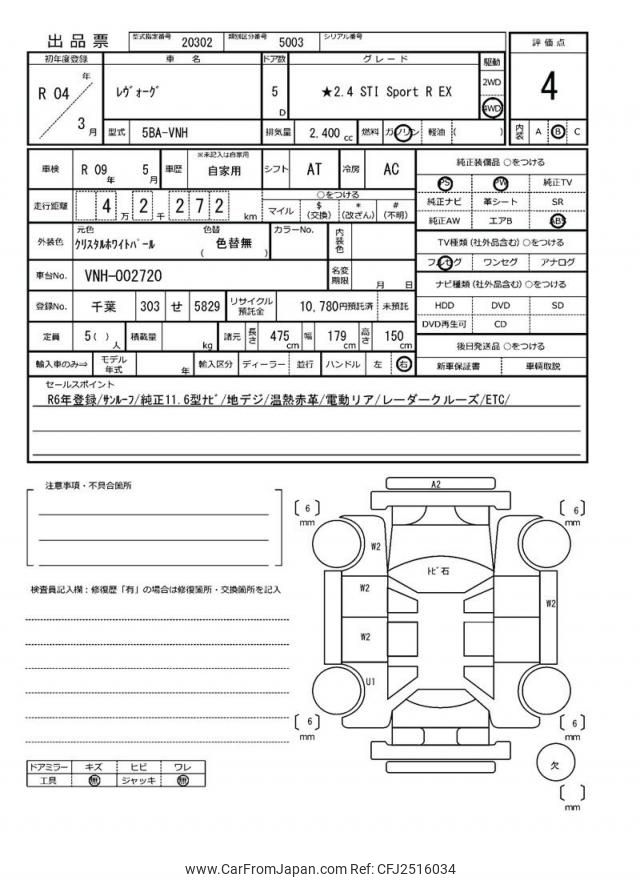 出品票 型式指定番号 20302 類別区分番号 5003 シリアル番号
初年度登録 車名 ドア数 グレード 駆動 評価点
R 04 年 3 月 ﾚｳﾞｫｰｸﾞ 5 D ★2.4 STI Sport R EX 2WD 4WD 4
型式 5BA-VNH 排気量 2,400 cc 燃料 ガソリン 軽油 ( ) 内装 A B C
車検 R 09 年 5 月 車歴 ※未記入は自家用 自家用 シフト AT 冷房 AC
走行距離 4 万 2 千 2 7 2 km ○をつける マイル $ (交換) * (改ざん) # (不明)
外装色 元色 ｸﾘｽﾀﾙﾎﾜｲﾄﾊﾟｰﾙ 色替 ( 色替無 ) カラーNo. 内装色
車台No. VNH-002720 名変期限 月 日
登録No. 千葉 303 せ 5829 リサイクル預託金 10,780円預託済 未預託
定員 5( ) 人 積載量 kg 諸元 長さ 475 cm 幅 179 cm 高さ 150 cm
輸入車のみ⇒ モデル年式 年 輸入区分 ディーラー 並行 ハンドル 左 右
純正装備品 ○をつける
PS PW 純正TV
純正ナビ 革シート SR
純正AW エアB ABS
TV種類(社外品含む)○をつける
フルセグ ワンセグ アナログ
ナビ種類(社外品含む)○をつける
HDD DVD SD
DVD再生可 CD
後日発送品 ○をつける
新車保証書 車輌取説
セールスポイント
R6年登録/ｻﾝﾙｰﾌ/純正11.6型ﾅﾋﾞ/地デジ/温熱赤革/電動リア/レーダークルーズ/ETC/
注意事項・不具合箇所
検査員記入欄：修復歴「有」の場合は修復箇所・交換箇所を記入
A2
6 mm
6 mm
W2
ﾄﾋﾞ石
W2
W2
W2
U1
6 mm
6 mm
欠
mm
ドアミラー キズ ヒビ ワレ
工具 無 ジャッキ 無
www.CarFromJapan.com Ref: CFJ2516034